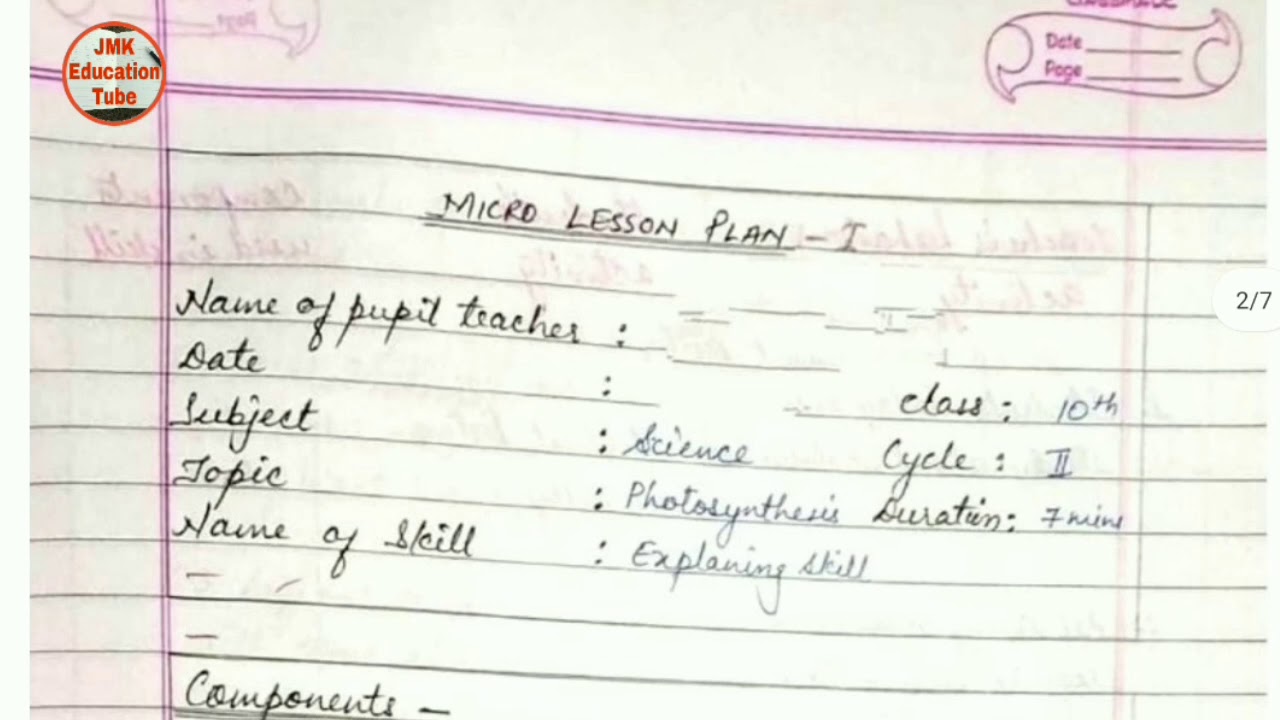 JMK
Education
Tube
Date
Page
MICRO LESSON PLAN - I
Name of pupil teacher :
Date : Class : 10th
Subject : Science Cycle : II
Topic : Photosynthesis Duration : 7 mins
Name of Skill : Explaning Skill
Components -
2/7